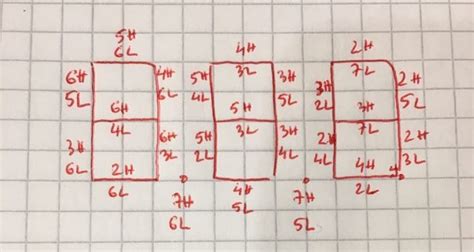 5H 4H 2H
6L 3L 7L
6H 4H 5H 3H 3H 2H
5L 6L 4L 5L 2L 5L
6H 5H 3H
4L 3L 7L
3H 6H 5H 3H 2H 2H
6L 3L 2L 4L 4L 3L
2H 4H 4H
6L 5L 2L
7H 7H
6L 5L